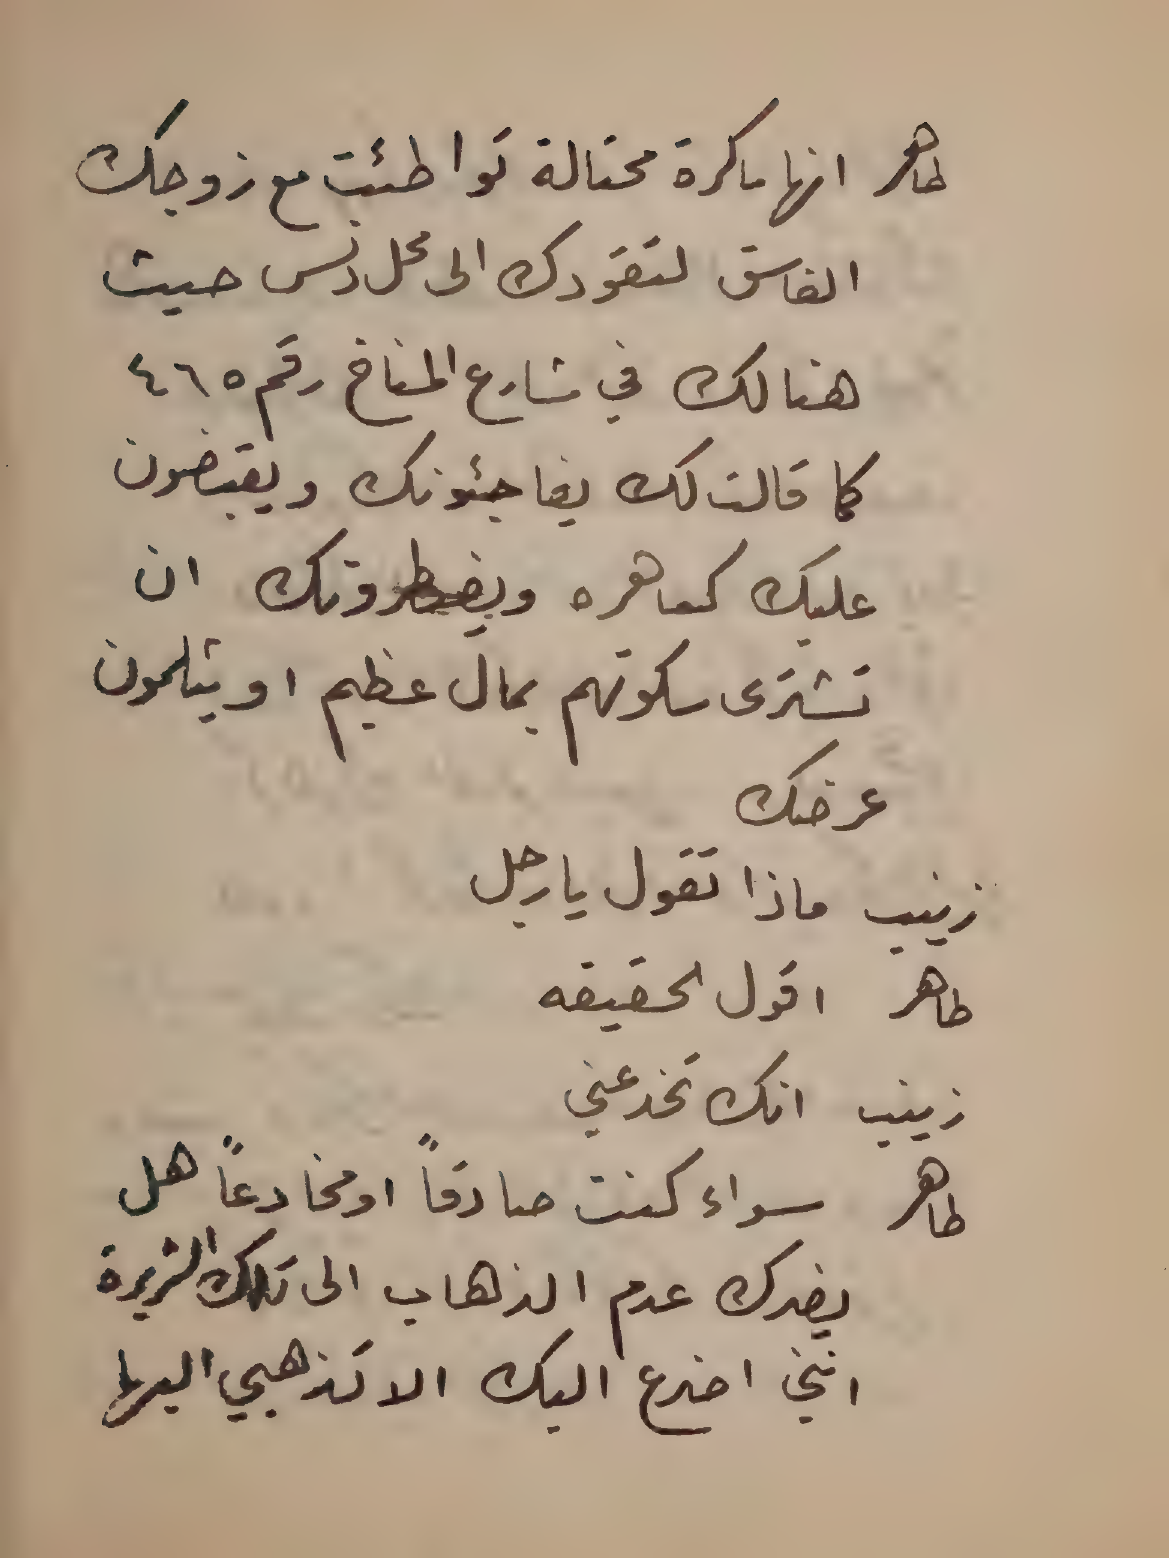 طاهر انها ماكرة محتالة تواطئت مع زوجك
الفاسق لتقودك الى محل دنس حيث
هنالك في شارع المناخ رقم ٤٦٥
كما قالت لك يفاجئونك ويقبضون
عليك كعاهره ويضطرونك ان
تشترى سكوتهم بمال عظيم او يثلمون
عرضك
زينب ماذا تقول يارجل
طاهر اقول الحقيقه
زينب انك تخدعني
طاهر سواء كنت صادقاً او مخادعاً هل
يضرك عدم الذهاب الى تلك الشريرة
انني اضرع اليك الا تذهبي اليها